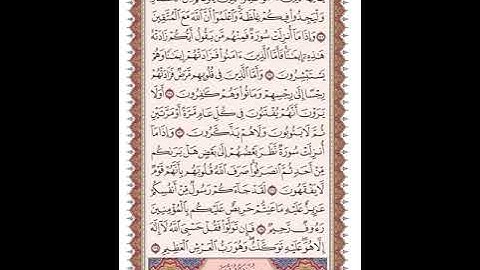 وَلْيَجِدُوا۟ فِيكُمْ غِلْظَةً وَٱعْلَمُوٓا۟ أَنَّ ٱللَّهَ مَعَ ٱلْمُتَّقِينَ
وَإِذَا مَآ أُنزِلَتْ سُورَةٌ فَمِنْهُم مَّن يَقُولُ أَيُّكُمْ زَادَتْهُ
هَٰذِهِۦٓ إِيمَٰنًا فَأَمَّا ٱلَّذِينَ ءَامَنُوا۟ فَزَادَتْهُمْ إِيمَٰنًا وَهُمْ
يَسْتَبْشِرُونَ وَأَمَّا ٱلَّذِينَ فِى قُلُوبِهِم مَّرَضٌ فَزَادَتْهُمْ
رِجْسًا إِلَىٰ رِجْسِهِمْ وَمَاتُوا۟ وَهُمْ كَٰفِرُونَ أَوَلَا
يَرَوْنَ أَنَّهُمْ يُفْتَنُونَ فِى كُلِّ عَامٍ مَّرَّةً أَوْ مَرَّتَيْنِ
ثُمَّ لَا يَتُوبُونَ وَلَا هُمْ يَذَّكَّرُونَ وَإِذَا مَآ
أُنزِلَتْ سُورَةٌ نَّظَرَ بَعْضُهُمْ إِلَىٰ بَعْضٍ هَلْ يَرَىٰكُم
مِّنْ أَحَدٍ ثُمَّ ٱنصَرَفُوا۟ صَرَفَ ٱللَّهُ قُلُوبَهُم بِأَنَّهُمْ قَوْمٌ
لَّا يَفْقَهُونَ لَقَدْ جَآءَكُمْ رَسُولٌ مِّنْ أَنفُسِكُمْ
عَزِيزٌ عَلَيْهِ مَا عَنِتُّمْ حَرِيصٌ عَلَيْكُم بِٱلْمُؤْمِنِينَ
رَءُوفٌ رَّحِيمٌ فَإِن تَوَلَّوْا۟ فَقُلْ حَسْبِىَ ٱللَّهُ لَآ إِلَٰهَ
إِلَّا هُوَ عَلَيْهِ تَوَكَّلْتُ وَهُوَ رَبُّ ٱلْعَرْشِ ٱلْعَظِيمِ